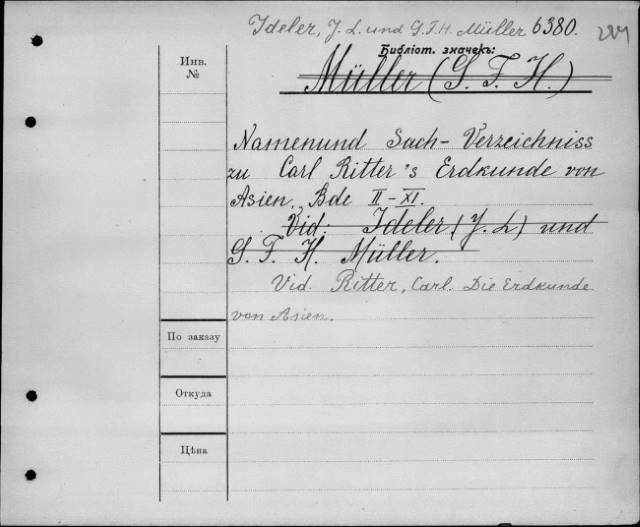 Ideler, J. L. und G. F. H. Müller 6380.
Библiот. значекъ:
Инв.
№
Müller (G. F. H.)
Namenund Sach-Verzeichniss
zu Carl Ritter's Erdkunde von
Asien, Bde II-XI.
Vid: Ideler, (J. L) und
G. F. H. Müller.
Vid. Ritter, Carl. Die Erdkunde
von Asien.
По заказу
Откуда
Цѣна